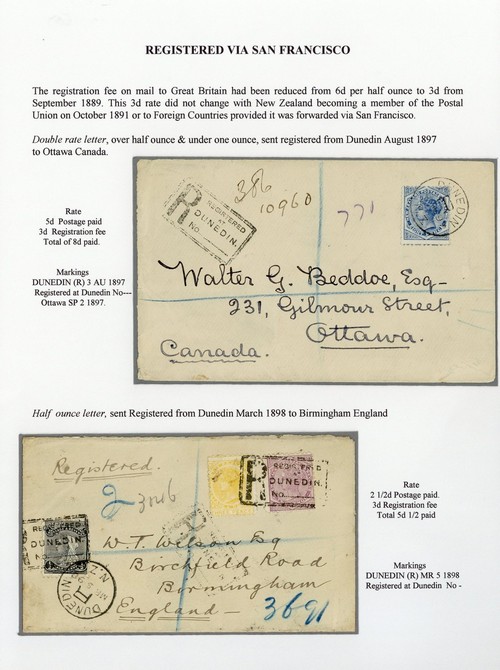 REGISTERED VIA SAN FRANCISCO
The registration fee on mail to Great Britain had been reduced from 6d per half ounce to 3d from
September 1889. This 3d rate did not change with New Zealand becoming a member of the Postal
Union on October 1891 or to Foreign Countries provided it was forwarded via San Francisco.
Double rate letter, over half ounce & under one ounce, sent registered from Dunedin August 1897
to Ottawa Canada.
Rate
5d Postage paid
3d Registration fee
Total of 8d paid.
Markings
DUNEDIN (R) 3 AU 1897
Registered at Dunedin No---
Ottawa SP 2 1897.
R
REGISTERED
AT
DUNEDIN.
No
386
10960
771
DUNEDIN
Walter G. Beddoe, Esq-
231, Gilmour Street,
Ottawa.
Canada.
Half ounce letter, sent Registered from Dunedin March 1898 to Birmingham England
Registered.
R
REGISTERED
AT
DUNEDIN.
No
REGISTERED
AT
DUNEDIN.
No
DUNEDIN
N.Z
W. T. Wilson Esq
Birchfield Road
Birmingham
England
3691
Rate
2 1/2d Postage paid.
3d Registration fee
Total 5d 1/2 paid
Markings
DUNEDIN (R) MR 5 1898
Registered at Dunedin No -